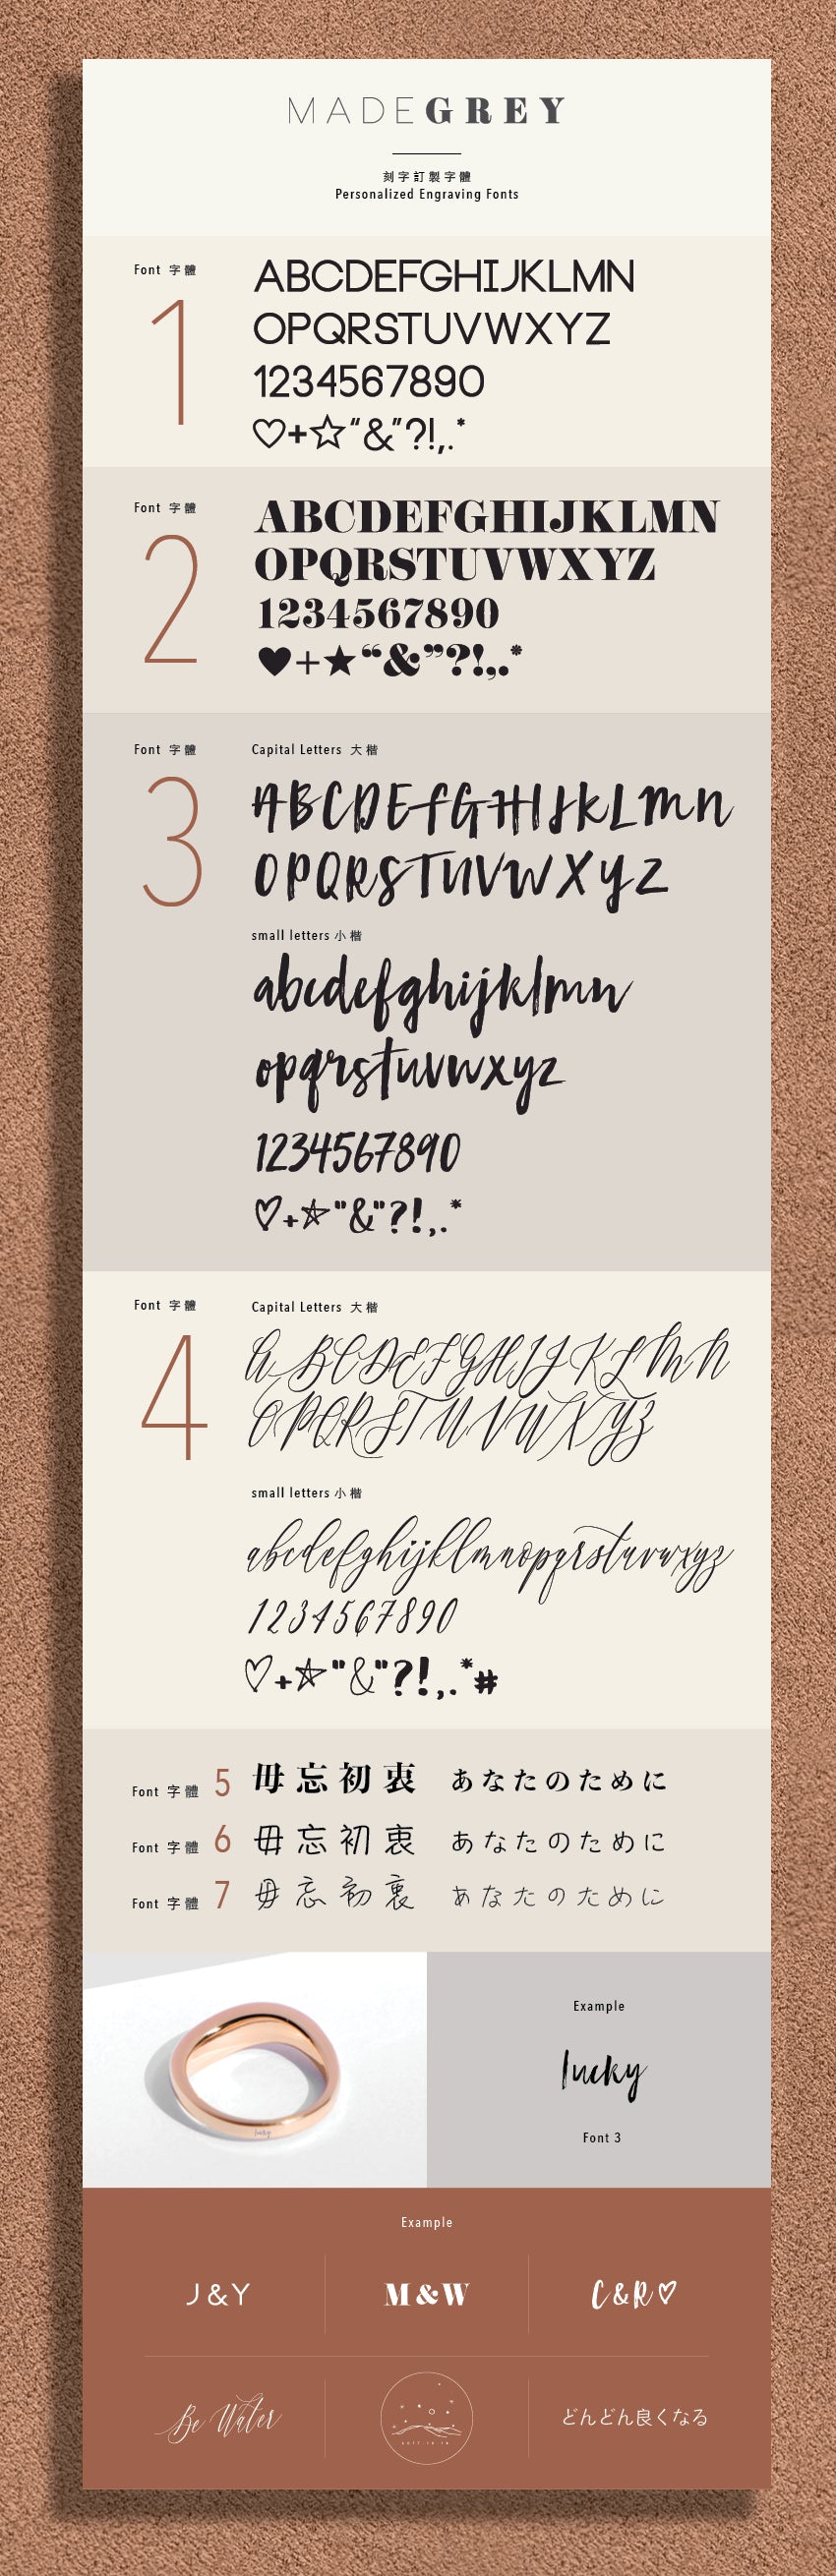 MADEGREY
刻字訂製字體
Personalized Engraving Fonts
Font 字體
1
ABCDEFGHIJKLMN
OPQRSTUVWXYZ
1234567890
♡+☆“&”?!,.*
Font 字體
2
ABCDEFGHIJKLMN
OPQRSTUVWXYZ
1234567890
♥+★“&”?!,.*
Font 字體
3
Capital Letters 大楷
ABCDEFGHIJKLMN
OPQRSTUVWXYZ
small letters 小楷
abcdefghijklmn
opqrstuvwxyz
1234567890
♡+☆"&"?!,.*
Font 字體
4
Capital Letters 大楷
ABCDEFGHIJKLMN
OPQRSTUVWXYZ
small letters 小楷
abcdefghijklmnopqrstuvwxyz
1234567890
♡+☆"&"?!,.*#
Font 字體 5 毋忘初衷 あなたのために
Font 字體 6 毋忘初衷 あなたのために
Font 字體 7 毋忘初衷 あなたのために
lucky
Example
lucky
Font 3
Example
J&Y
M&W
C&R♡
Be Water
どんどん良くなる